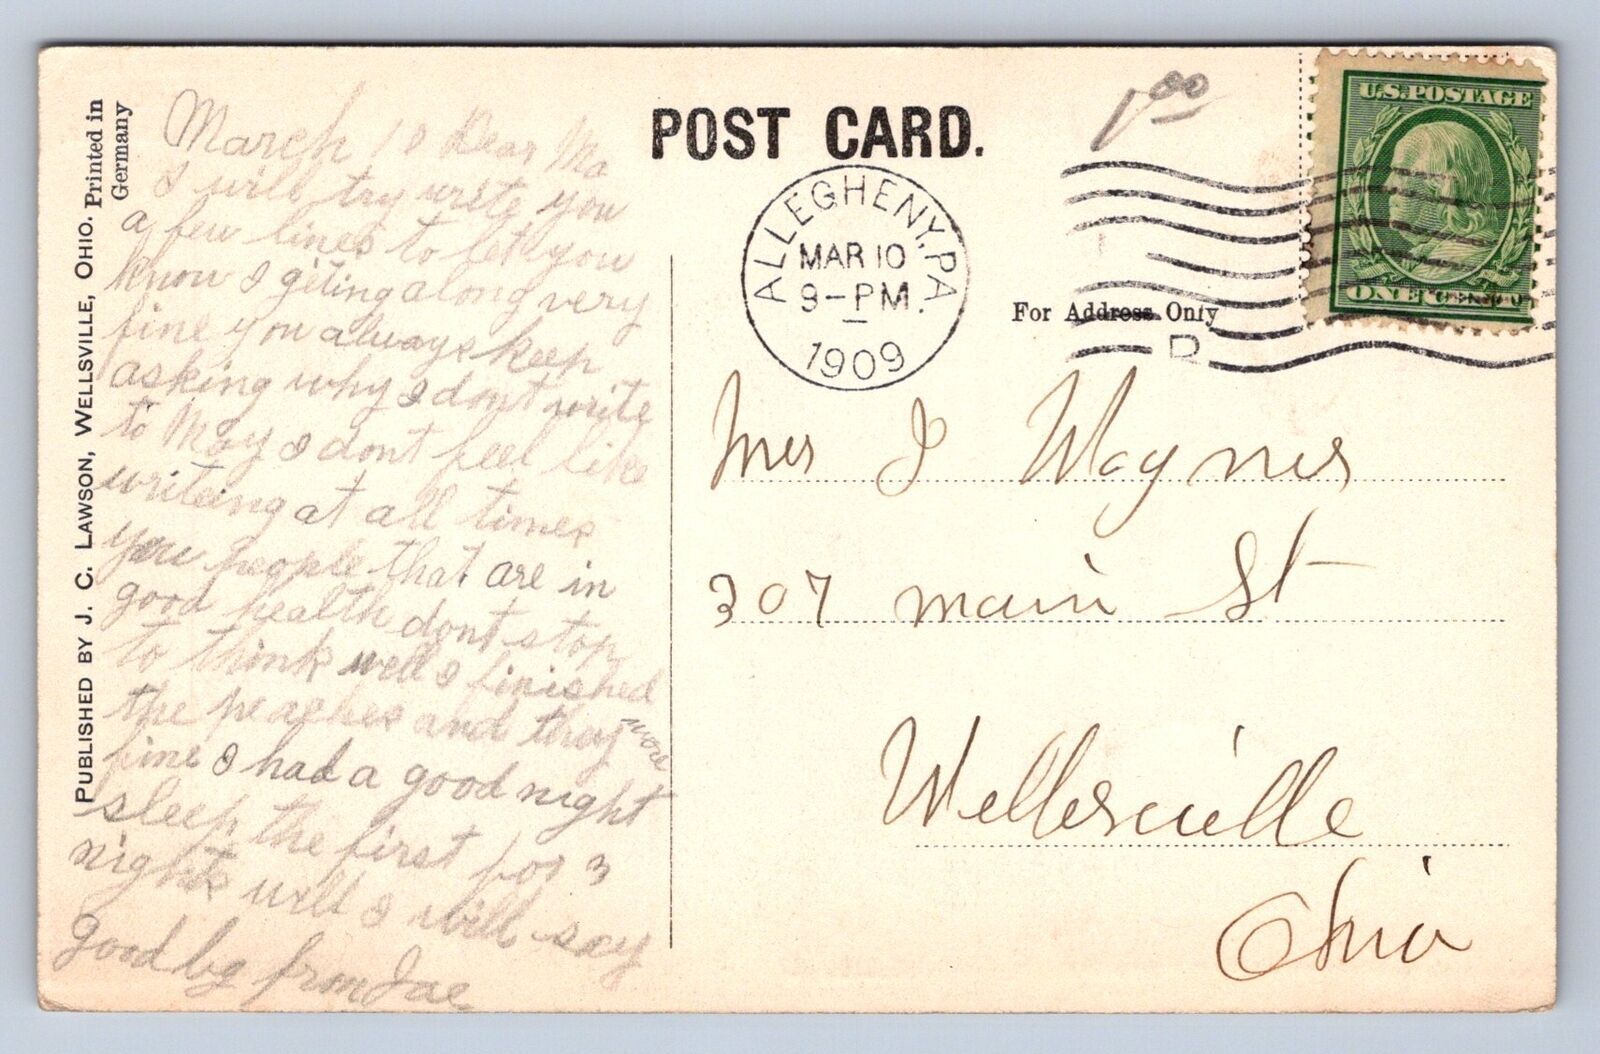 PUBLISHED BY J. C. LAWSON, WELLSVILLE, OHIO.
Printed in
Germany
March 10 Dear Ma
I will try write you
a few lines to let you
know I giting along very
fine you always keep
asking why I dont write
to May I dont feel like
writeing at all times
you people that are in
good health dont stop
to think well I finished
the peaches and they
fine I had a good night
sleep the first for 3
nights will I will say
good by from Joe
POST CARD.
1 00
ALLEGHENY, PA.
MAR 10
9-PM
1909
U.S. POSTAGE
ONE CENT
For Address Only
Mrs J Waynes
307 main St
Wellsville
Ohio